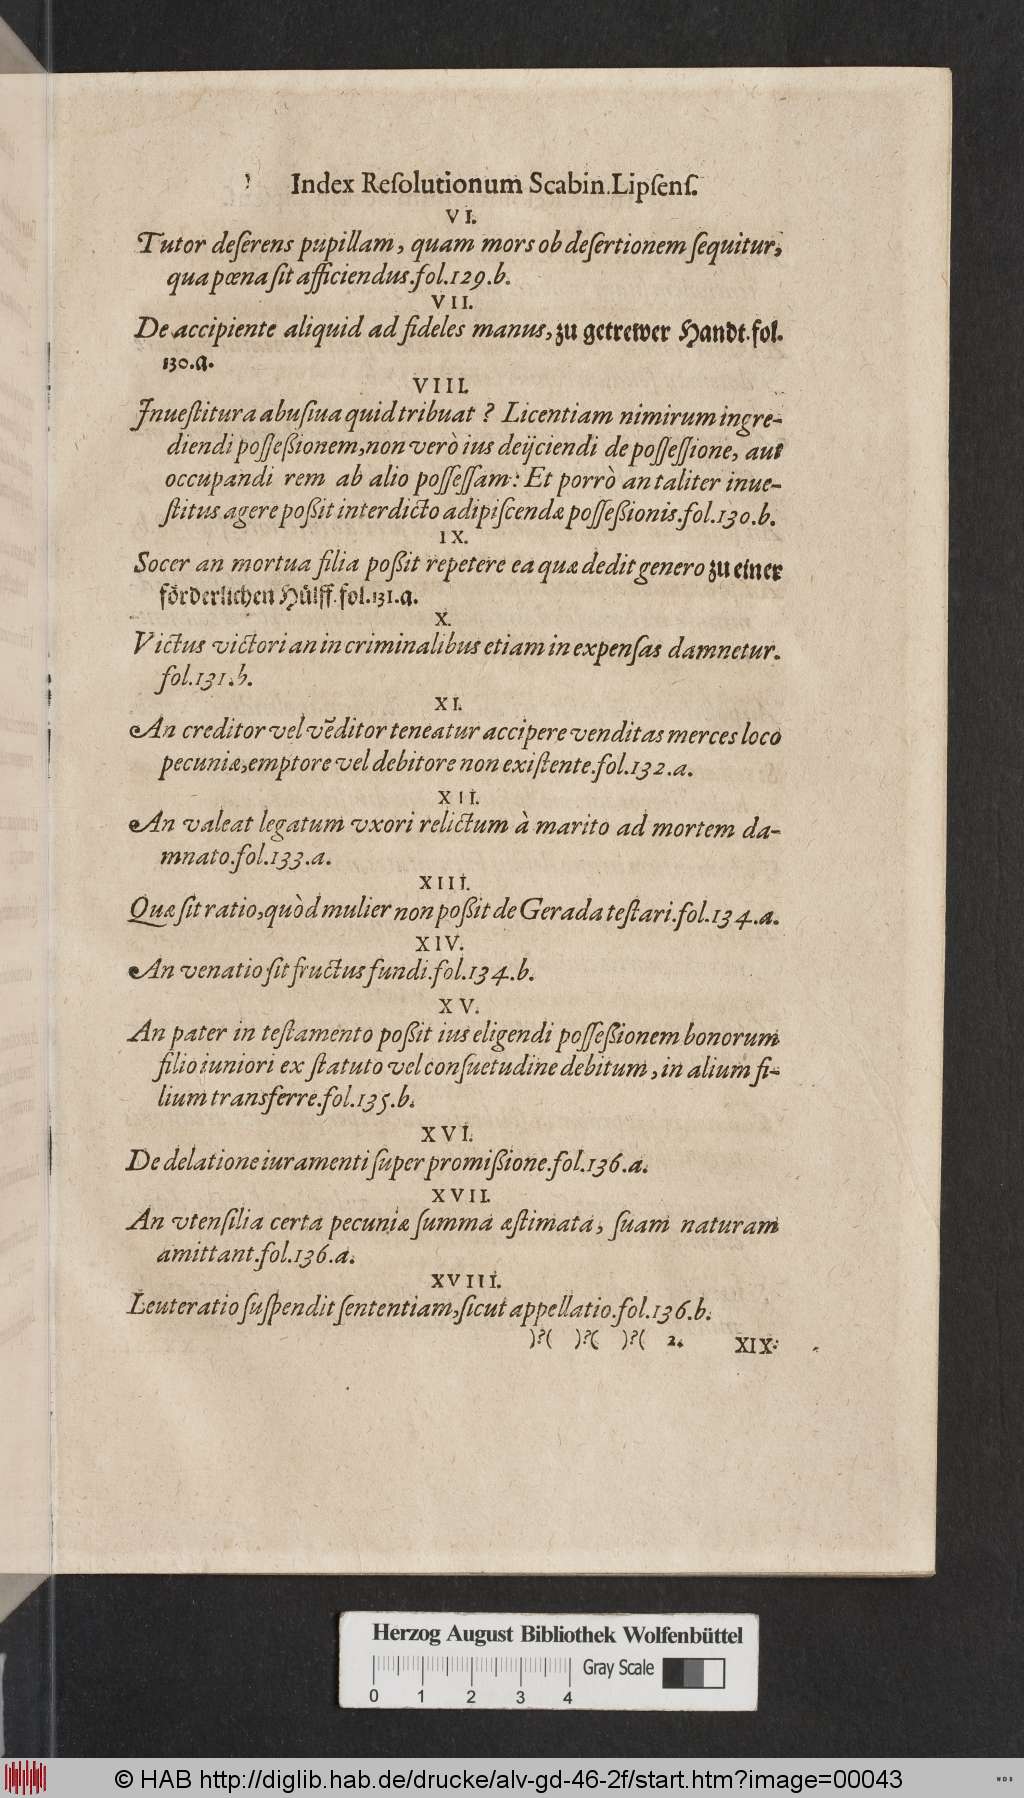 Index Reſolutionum Scabin.Lipſenſ.
VI.
Tutor deſerens pupillam, quam mors ob deſertionem ſequitur,
qua pœna ſit afficiendus.fol.129.b.
VII.
De accipiente aliquid ad fideles manus, zu getrewer Handt.fol.
130.a.
VIII.
Inueſtitura abuſiua quid tribuat ? Licentiam nimirum ingre-
diendi poſſeßionem,non verò ius deijciendi de poſſeſſione, aut
occupandi rem ab alio poſſeſſam: Et porrò an taliter inue-
ſtitus agere poßit interdicto adipiſcendæ poſſeßionis.fol.130.b.
IX.
Socer an mortua filia poßit repetere ea quæ dedit genero zu einer
förderlichen Hülff.fol.131.a.
X.
Victus victori an in criminalibus etiam in expenſas damnetur.
fol.131.b.
XI.
An creditor vel vēditor teneatur accipere venditas merces loco
pecuniæ,emptore vel debitore non exiſtente.fol.132.a.
XII.
An valeat legatum vxori relictum à marito ad mortem da-
mnato.fol.133.a.
XIII.
Quæ ſit ratio,quòd mulier non poßit de Gerada teſtari.fol.134.a.
XIV.
An venatio ſit fructus fundi.fol.134.b.
XV.
An pater in teſtamento poßit ius eligendi poſſeßionem bonorum
filio iuniori ex ſtatuto vel conſuetudine debitum, in alium fi-
lium transferre.fol.135.b.
XVI.
De delatione iuramenti ſuper promißione.fol.136.a.
XVII.
An vtenſilia certa pecuniæ ſumma æſtimata, ſuam naturam
amittant.fol.136.a.
XVIII.
Leuteratio ſuſpendit ſententiam,ſicut appellatio.fol.136.b.
)?( )?( )?( 2. XIX.
Herzog August Bibliothek Wolfenbüttel
Gray Scale
0 1 2 3 4
© HAB http://diglib.hab.de/drucke/alv-gd-46-2f/start.htm?image=00043